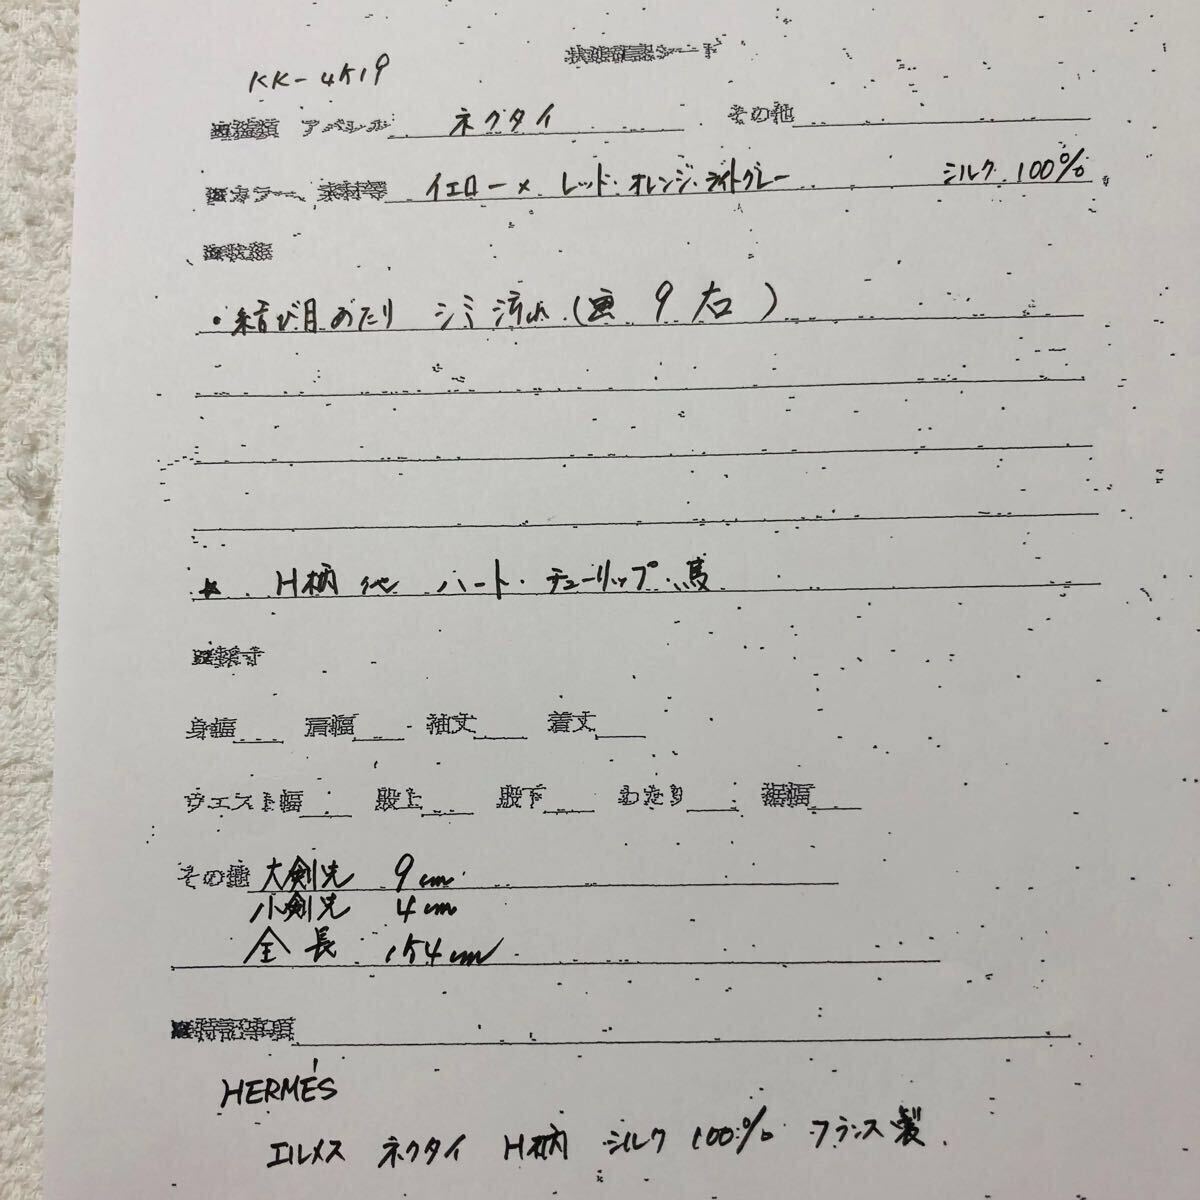 状態確認シート
KK-4519
■種類 アパレル ネクタイ その他
■カラー、素材等 イエロー×レッド・オレンジ・ライトグレー シルク 100%
■状態
・結び目あたり シミ 汚れ (画 9 右)
★ H柄 他 ハート・チューリップ・馬
■採寸
身幅 肩幅 袖丈 着丈
ウエスト幅 股上 股下 わたり 裾幅
その他 大剣先 9cm
小剣先 4cm
全長 154cm
■特記事項
HERMÉS
エルメス ネクタイ H柄 シルク 100% フランス製